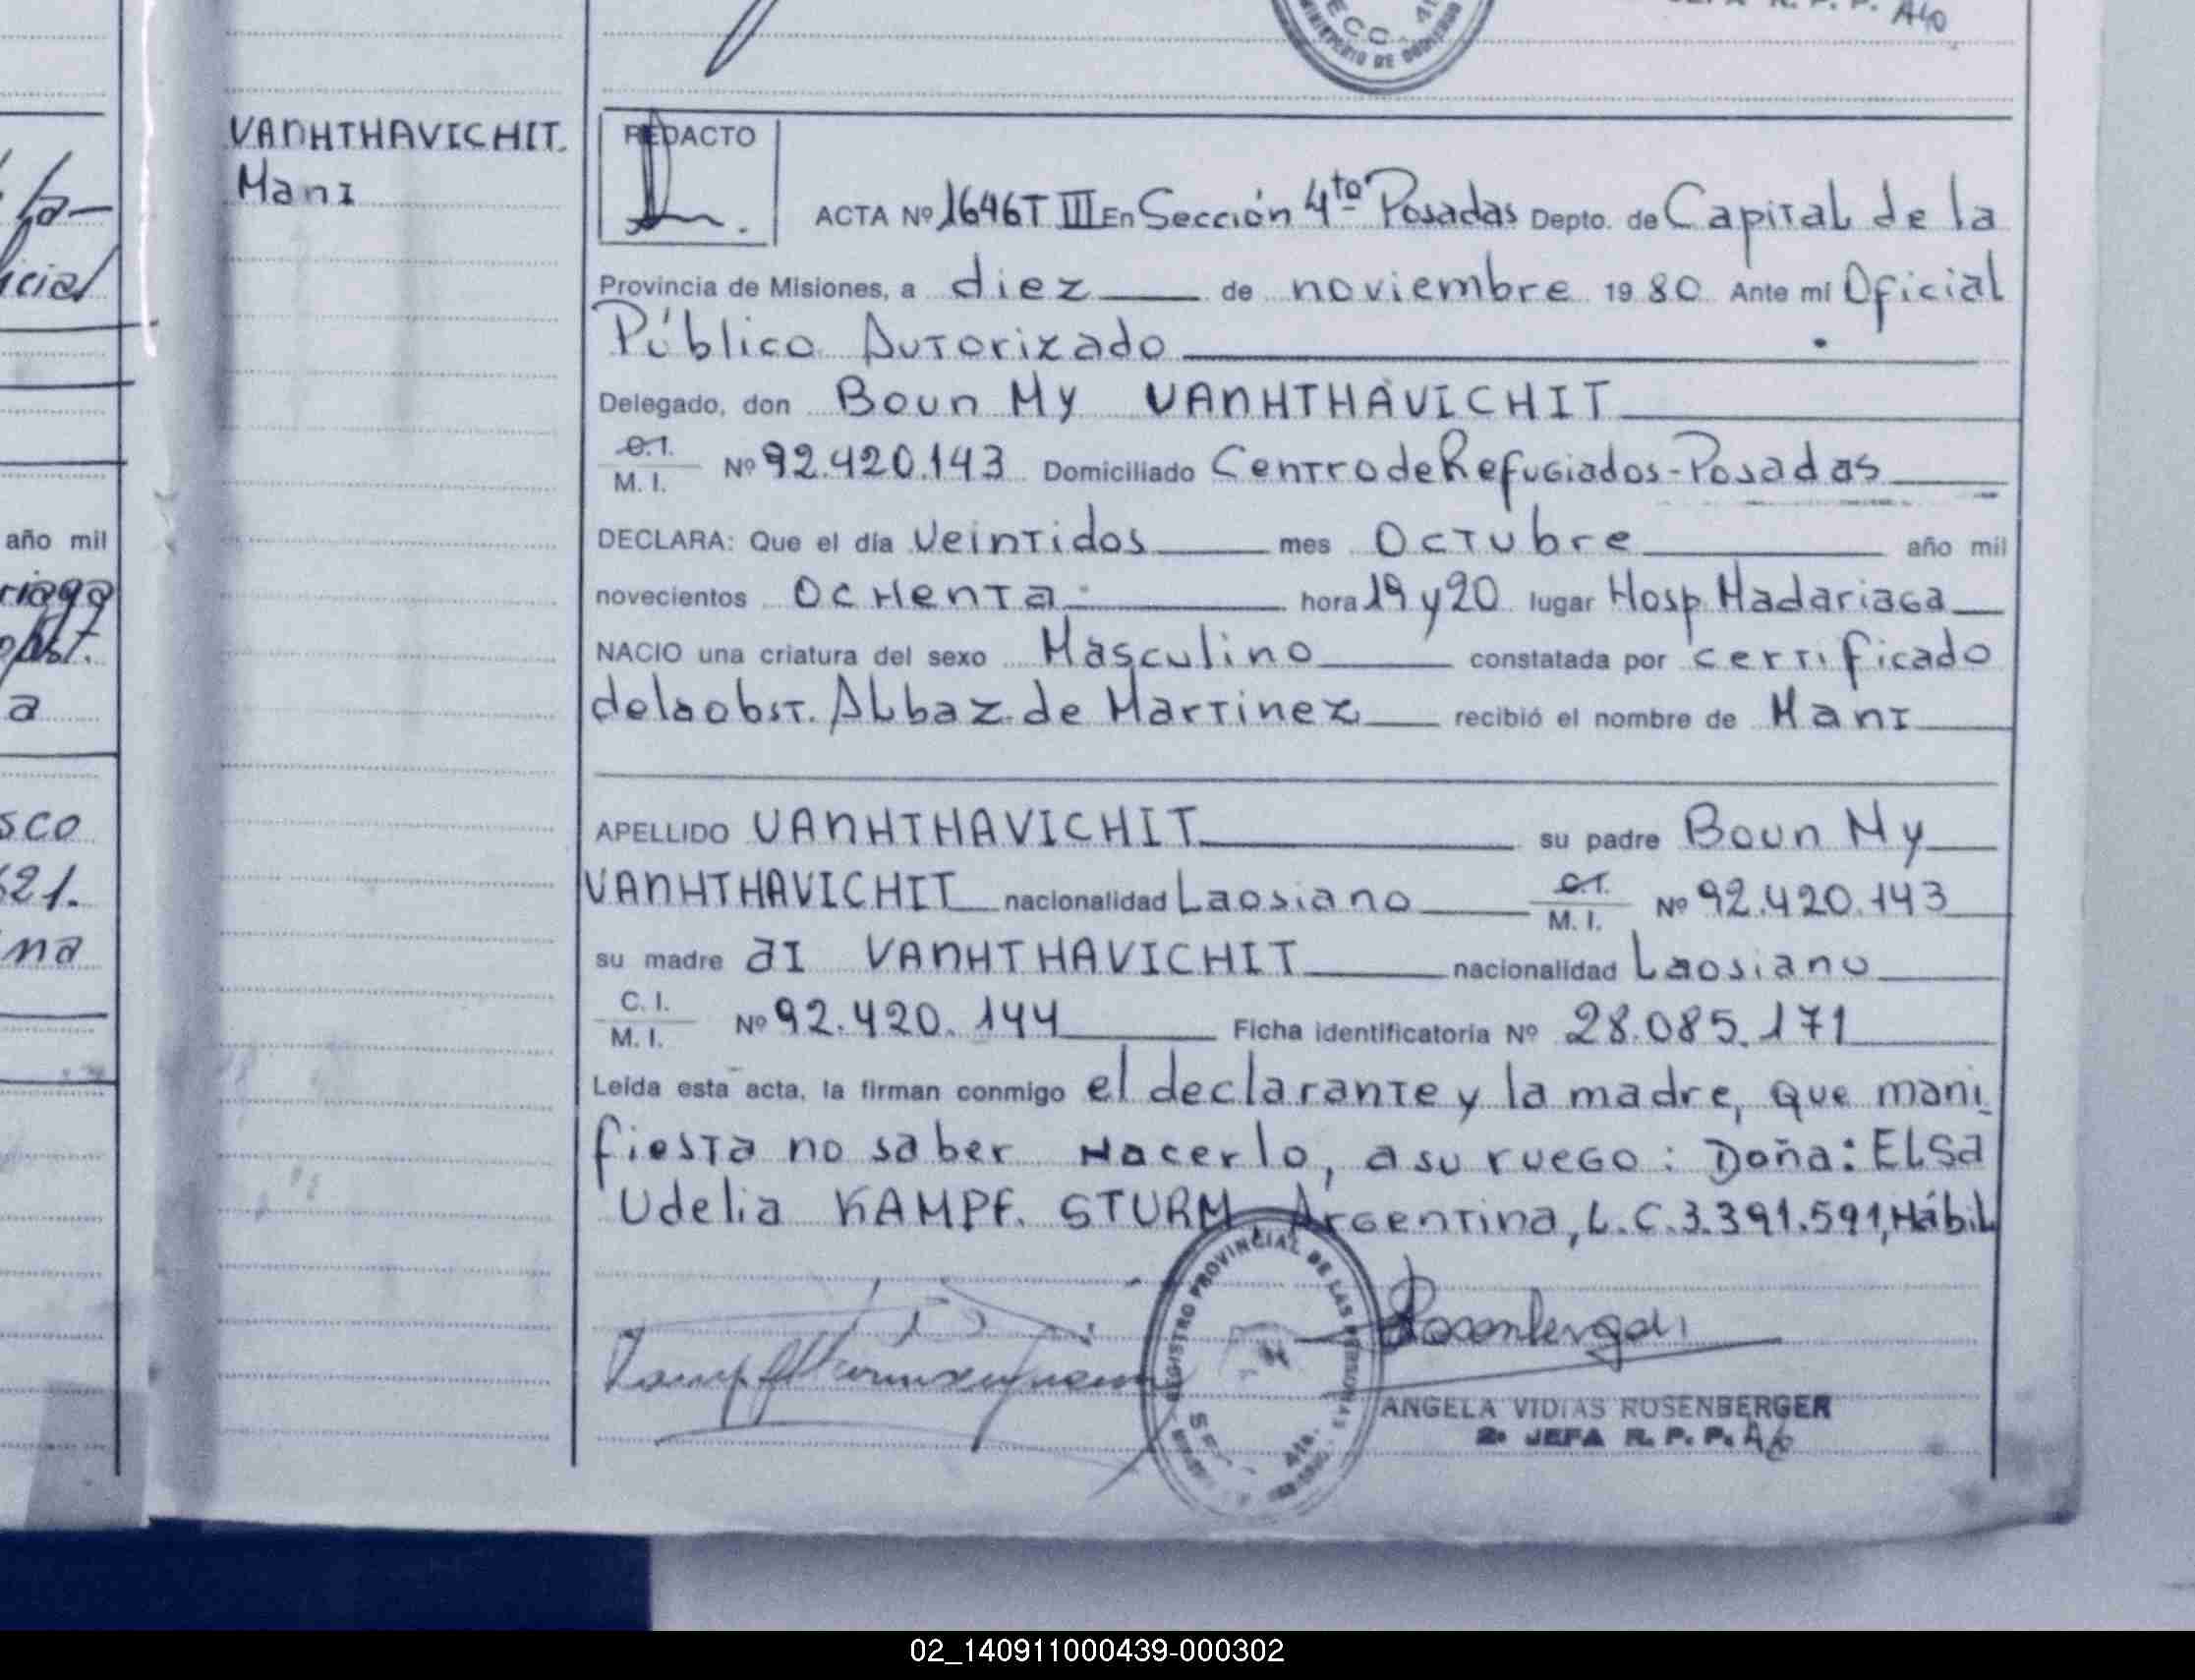 A/C
VANHTHAVICHIT.
Mani
REDACTO
ACTA Nº 1646 T III En Sección 4ta Posadas Depto. de Capital de la
Provincia de Misiones, a diez de noviembre 1980 Ante mi Oficial
Público Autorizado
Delegado, don Boun My VANHTHAVICHIT
C.I.
M. I. Nº 92.420.143 Domiciliado Centro de Refugiados-Posadas
DECLARA: Que el día veintidos mes Octubre año mil
novecientos ochenta hora 19 y 20 lugar Hosp. Madariaga
NACIO una criatura del sexo Masculino constatada por certificado
de la obst. Albaz de Martinez recibió el nombre de Mani
APELLIDO VANHTHAVICHIT su padre Boun My
VANHTHAVICHIT nacionalidad Laosiano C.I.
M. I. Nº 92.420.143
su madre aI VANHTHAVICHIT nacionalidad Laosiano
C. I.
M. I. Nº 92.420.144 Ficha identificatoria Nº 28.085.171
Leída esta acta, la firman conmigo el declarante y la madre, que mani
fiesta no saber hacerlo, a su ruego: Doña: Elsa
Udelia KAMPF. STURM, Argentina, L.C. 3.391.591, Hábil
REGISTRO PROVINCIAL DE LAS PERSONAS
ANGELA VIDIAS ROSENBERGER
2º JEFA R. P. P. A/C
año mil
icial
a
sco
621.
na
02_140911000439-000302